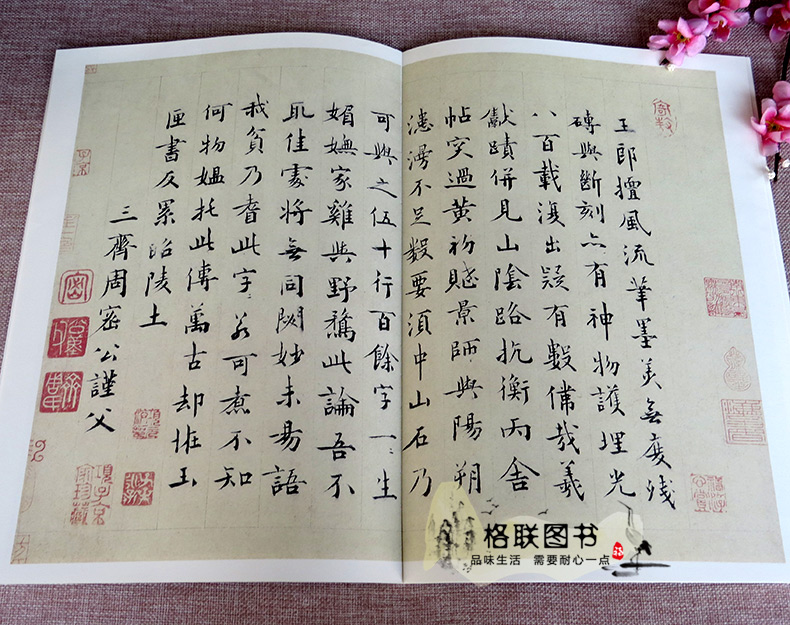 王郎擅風流筆墨美無度殘
磚與斷刻亦有神物護埋光
八百載復出疑有數偉哉羲
獻蹟併見山陰路抗衡丙舍
帖突過黃初賦景師與陽朔
漶漫不足數要須中山石乃
可與之伍十行百餘字一一生
媚嫵家雞與野鶩此論吾不
取佳處將無同闕妙未易語
我貧乃耆此字若可煮不知
何物媼托此傳萬古却推玉
匣書反累昭陵土
三齊周密公謹父
項子京家珍藏
格联图书
品味生活 需要耐心一点